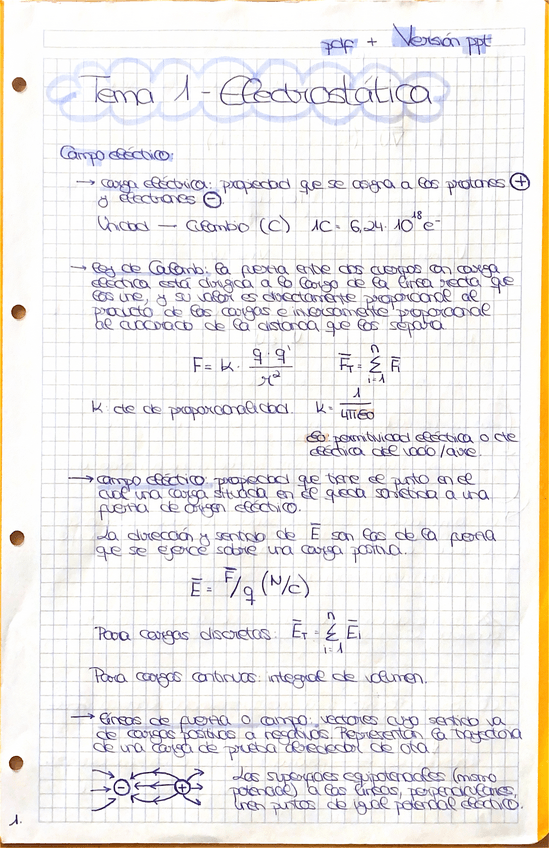 pdf + Versión ppt
Tema 1 - Electrostática
Campo eléctrico:
→ carga eléctrica: propiedad que se asigna a los protones ⊕
y electrones ⊖.
Unidad — Culombio (C) 1C = 6,24·10¹⁸ e⁻
→ Ley de Coulomb: la fuerza entre dos cuerpos con carga
eléctrica está dirigida a lo largo de la línea recta que
los une, y su valor es directamente proporcional al
producto de las cargas e inversamente proporcional
al cuadrado de la distancia que los separa.
F = K · q · q' / r² F̄T = Σ i=1 n F̄i
K: cte de proporcionalidad. K = 1 / 4πε0
ε0: permitividad eléctrica o cte
eléctrica del vacío/aire.
→ campo eléctrico: propiedad que tiene el punto en el
cual una carga situada en él queda sometida a una
fuerza de origen eléctrico.
La dirección y sentido de Ē son los de la fuerza
que se ejerce sobre una carga positiva.
Ē = F̄/q (N/C)
Para cargas discretas: ĒT = Σ i=1 n Ēi
Para cargas continuas: integral de volumen.
→ líneas de fuerza o campo: vectores cuyo sentido va
de cargas positivas a negativas. Representan la trayectoria
de una carga de prueba alrededor de otra.
- +
Las superficies equipotenciales (mismo
potencial) a las líneas, perpendiculares,
unen puntos de igual potencial eléctrico.
1.